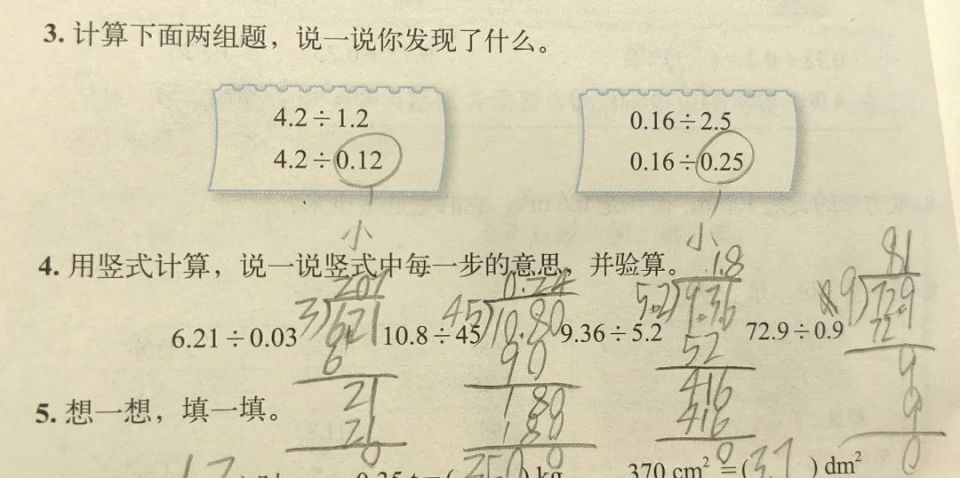 3. 计算下面两组题，说一说你发现了什么。
4.2÷1.2
4.2÷0.12
小
0.16÷2.5
0.16÷0.25
小
4. 用竖式计算，说一说竖式中每一步的意思，并验算。
6.21÷0.03
207
3)621
6
21
21
0
10.8÷45
0.24
45)10.80
90
180
180
0
9.36÷5.2
1.8
5.2)9.3.6
52
416
416
0
72.9÷0.9
81
9)72.9
72
9
9
0
5. 想一想，填一填。
370 cm² =(3.7) dm²